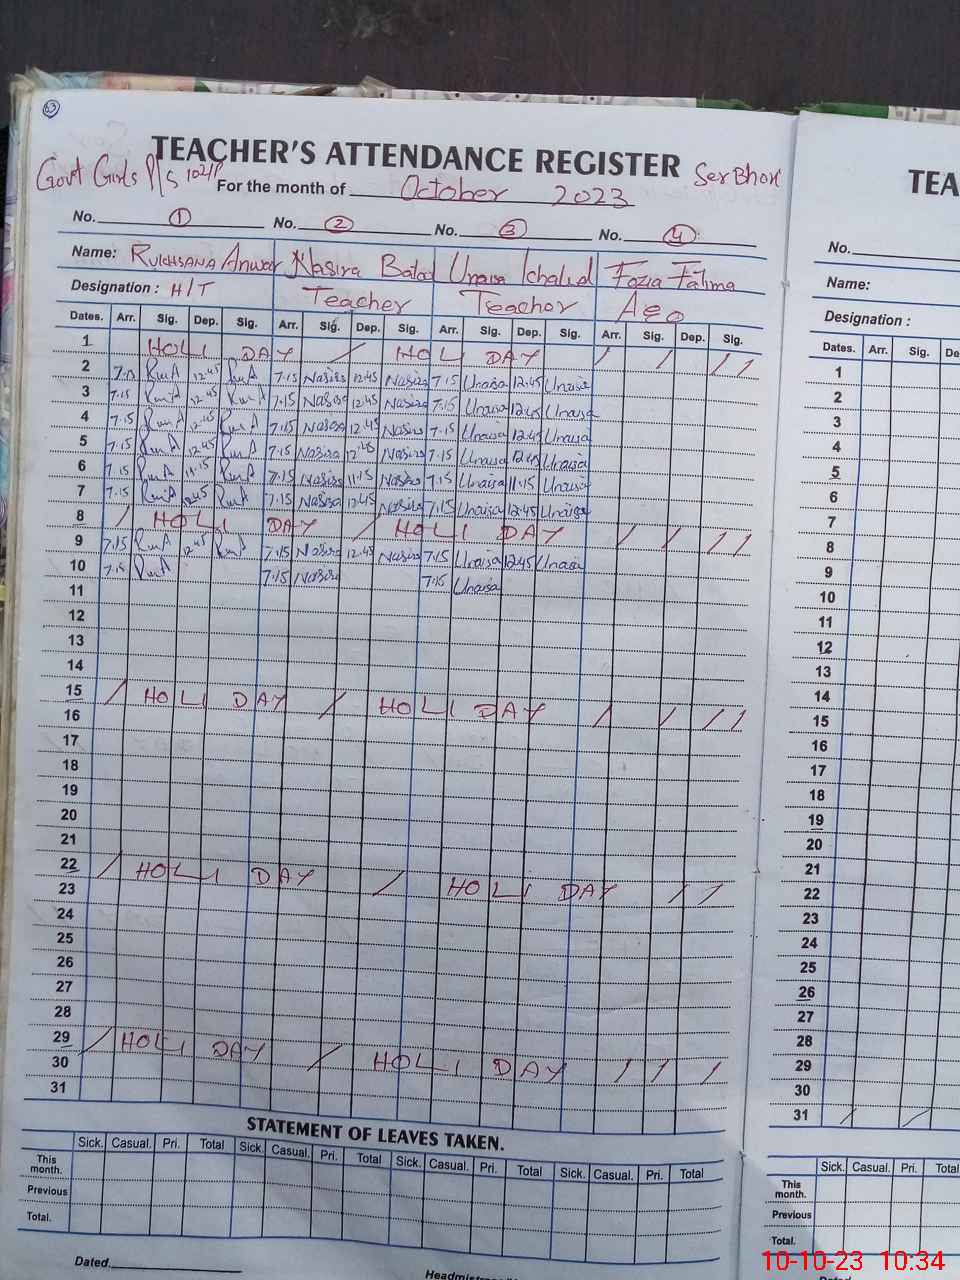 53
TEACHER'S ATTENDANCE REGISTER
Govt Girls P/S 102/P
For the month of October 2023
No. 1 No. 2 No. 3 No. 4
Name: Rukhsana Anwar Nasira Unaisa Khalid Fozia Fatima
Designation: H/T Teacher Teachor Aeo
Dates. Arr. Sig. Dep. Sig. Arr. Sig. Dep. Sig. Arr. Sig. Dep. Sig. Arr. Sig. Dep. Sig.
1 HOLI DAY / HOLI DAY / / / /
2 7.15 RunA 12.45 RunA 7.15 Nasira 12.45 Nasira 7.15 Unaisa 12.45 Unaisa
3 7.15 RunA 12.45 RunA 7.15 Nasira 12.45 Nasira 7.15 Unaisa 12.45 Unaisa
4 7.15 RunA 12.45 RunA 7.15 Nasira 12.45 Nasira 7.15 Unaisa 12.45 Unaisa
5 7.15 RunA 12.45 RunA 7.15 Nasira 12.45 Nasira 7.15 Unaisa 12.45 Unaisa
6 7.15 RunA 11.15 RunA 7.15 Nasira 11.15 Nasira 7.15 Unaisa 11.15 Unaisa
7 7.15 RunA 12.45 RunA 7.15 Nasira 12.45 Nasira 7.15 Unaisa 12.45 Unaisa
8 / HOLI DAY / HOLI DAY / / / /
9 7.15 RunA 12.45 RunA 7.15 Nasira 12.45 Nasira 7.15 Unaisa 12.45 Unaisa
10 7.15 RunA 7.15 Nasira 7.15 Unaisa
11
12
13
14
15 / HOLI DAY / HOLI DAY / / / /
16
17
18
19
20
21
22 / HOLI DAY / HOLI DAY / /
23
24
25
26
27
28
29 / HOLI DAY / HOLI DAY / / /
30
31
STATEMENT OF LEAVES TAKEN.
Sick. Casual. Pri. Total Sick. Casual. Pri. Total Sick. Casual. Pri. Total Sick. Casual. Pri. Total
This month.
Previous
Total.
Dated
TEA
No.
Name:
Designation :
Dates. Arr. Sig. De
1
2
3
4
5
6
7
8
9
10
11
12
13
14
15
16
17
18
19
20
21
22
23
24
25
26
27
28
29
30
31 / /
Sick. Casual. Pri. Total
This month.
Previous
Total.
10-10-23 10:34